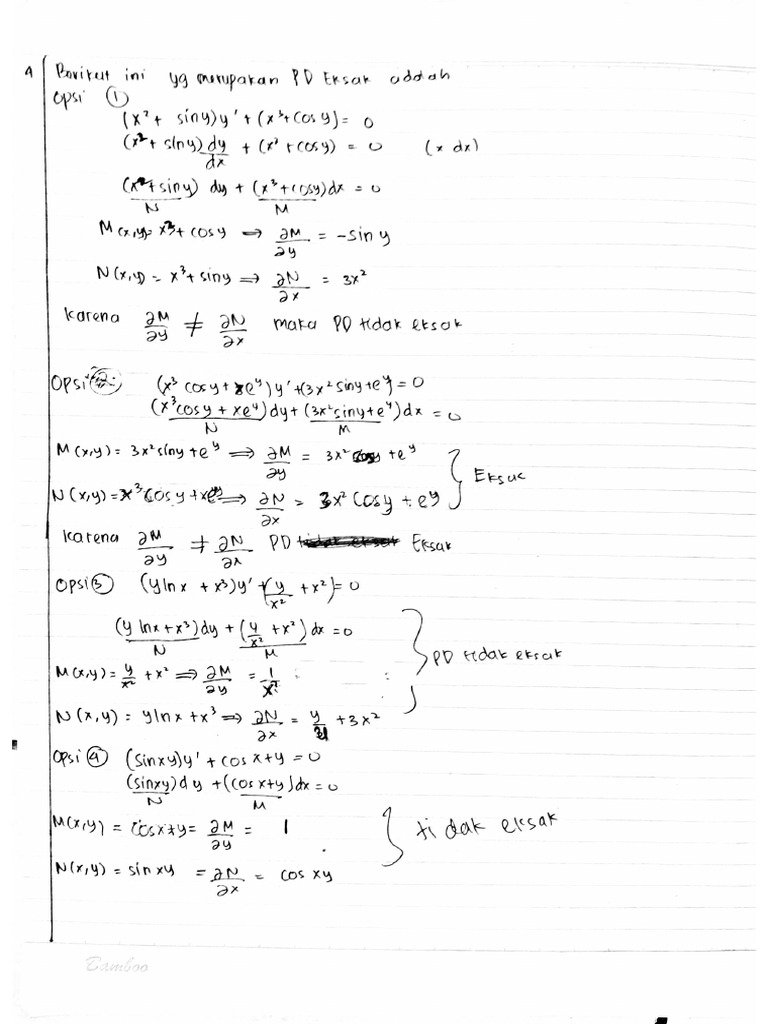 4 Berikut ini yg merupakan PD Eksak adalah
opsi ①
(x² + sin y) y' + (x³ + cos y) = 0
(x² + sin y) dy/dx + (x³ + cos y) = 0 (x dx)
(x² + sin y) dy + (x³ + cos y) dx = 0
N M
M(x,y) = x³ + cos y ⇒ ∂M/∂y = -sin y
N(x,y) = x³ + sin y ⇒ ∂N/∂x = 3x²
karena ∂M/∂y ≠ ∂N/∂x maka PD tidak eksak
Opsi 2 (x³ cos y + xe^y) y' + (3x² sin y + e^y) = 0
(x³ cos y + xe^y) dy + (3x² sin y + e^y) dx = 0
N M
M(x,y) = 3x² sin y + e^y ⇒ ∂M/∂y = 3x² cos y + e^y
Eksak
N(x,y) = x³ cos y + xe^y ⇒ ∂N/∂x = 3x² cos y + e^y
karena ∂M/∂y ≠ ∂N/∂x PD Eksak
Opsi ③ (y ln x + x³) y' + (y/x² + x²) = 0
(y ln x + x³) dy + (y/x² + x²) dx = 0
N M
PD tidak eksak
M(x,y) = y/x² + x² ⇒ ∂M/∂y = 1/x²
N(x,y) = y ln x + x³ ⇒ ∂N/∂x = y/ + 3x²
Opsi ④ (sin xy) y' + cos x + y = 0
(sin xy) dy + (cos x + y) dx = 0
N M
M(x,y) = cos x + y = ∂M/∂y = 1
tidak eksak
N(x,y) = sin xy = ∂N/∂x = cos xy
Bamboo